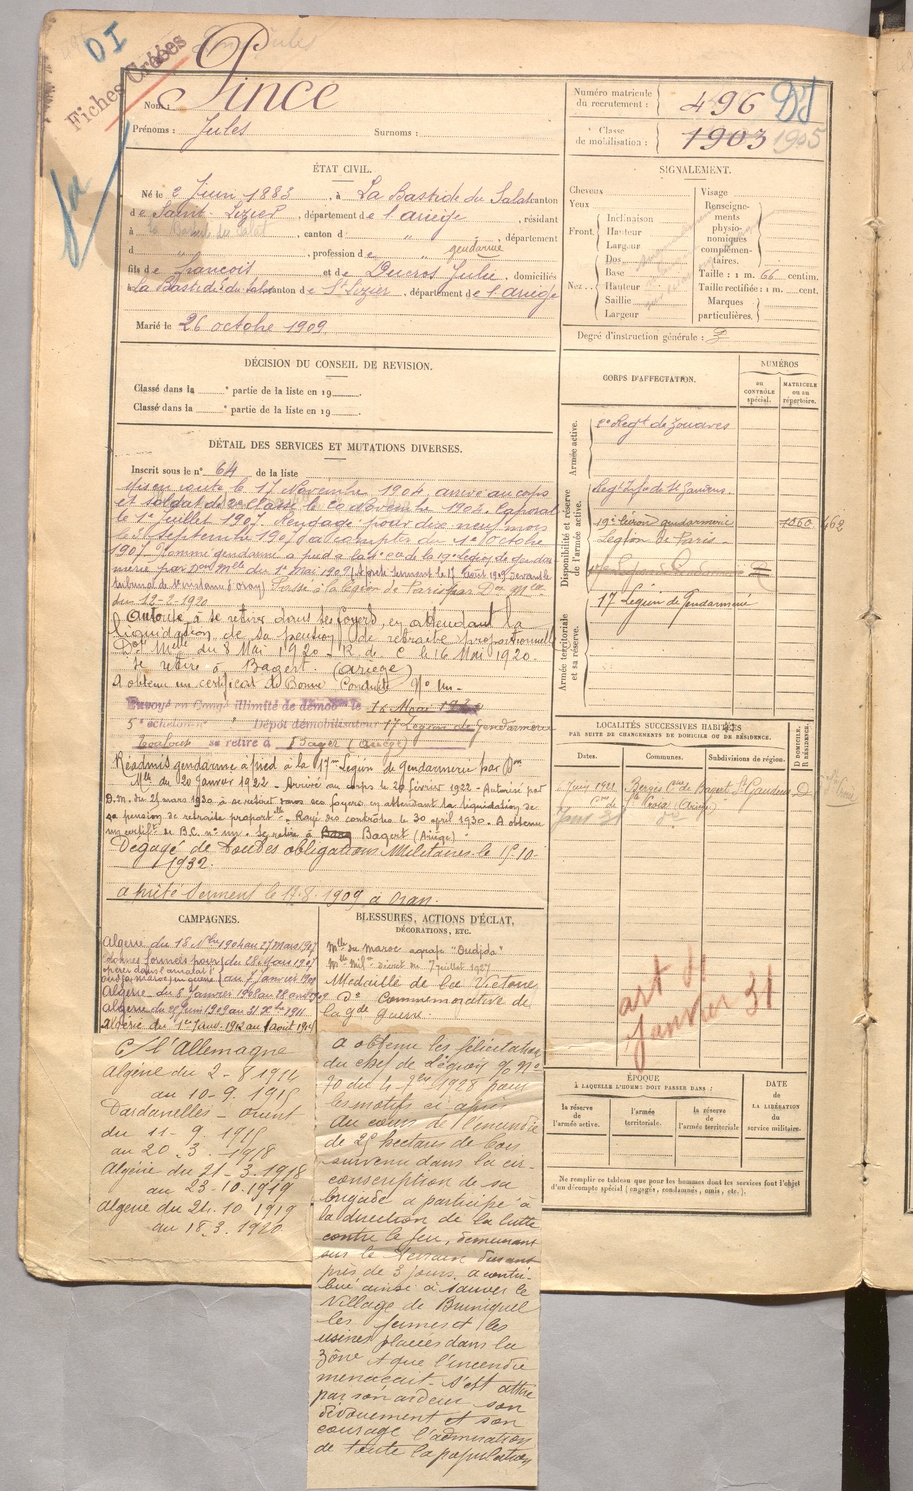 DI
Fiches Créées
Nom : Pince
Prénoms : Jules Surnoms :
Numéro matricule du recrutement : 496 DI
Classe de mobilisation : 1903 1905
ÉTAT CIVIL.
Né le 2 Juin 1883, à La Bastide du Salat canton
de Saint-Lizier, département de l'ariège, résidant
à La Bastide du Salat, canton d " " département
d " , profession de gendarme
fils de François et de Ducros Julie, domiciliés
à La Bastide du Salat canton de St Lizier, département de l'ariège
Marié le 26 octobre 1909.
SIGNALEMENT.
Cheveux
Yeux
Front.
Inclinaison
Hauteur
Largeur
Nez...
Dos
Base
Hauteur
Saillie
Largeur
Visage
Renseigne-
ments
physio-
nomiques
complémen-
taires.
Taille : 1 m. 66 centim.
Taille rectifiée : 1 m. cent.
Marques
particulières.
Degré d'instruction générale : 3
DÉCISION DU CONSEIL DE REVISION.
Classé dans la e partie de la liste en 19
Classé dans la e partie de la liste en 19
DÉTAIL DES SERVICES ET MUTATIONS DIVERSES.
Inscrit sous le n° 64 de la liste
Mis en route le 17 Novembre 1904, arrivé au corps
et soldat de 2e classe le 20 Novembre 1904. Caporal
le 1er Juillet 1907. Rengagé pour dix neuf mois
le 5 septembre 1907 à compter du 1er octobre
1907. Nommé gendarme à pied à la de la 19e Légion de gendar
merie par Don Mlle du 1er Mai 1909 (A prêté serment le 17 Août 1909 devant le
tribunal de 1re instance d'Oran) Passé à la légion de Paris par Don Mlle
du 12-2-1920
Autorisé à se retirer dans ses foyers, en attendant la
liquidation de sa pension de retraite proportionnelle
Don Mlle du 8 Mai 1920 - R. d. C. le 16 Mai 1920.
Se retire à Bagert. (Ariège)
A obtenu un certificat de Bonne Conduite N° Un-
Envoyé en Congé illimité de démob le 16 Mai 1920
5e échelon n° " Dépôt démobilisateur 17 Légion de Gendarmerie
Toulouse se retire à Bagert (Ariège)
Réadmis gendarme à pied à la 17me Légion de Gendarmerie par Don
Mlle du 20 janvier 1922 - Arrivé au corps le 20 février 1922 - Autorisé par
D.M. du 25 mars 1930 à se retirer dans ses foyers en attendant la liquidation de
sa pension de retraite proport lle - Rayé des contrôles le 30 april 1930. A obtenu
un certifict de B.C. n° un. Se retire à Bagert (Ariège)
Dégagé de toutes obligations Militaires le 15-10-
1932.
a prêté Serment le 17-8-1909 à Oran.
CORPS D'AFFECTATION.
NUMÉROS
au CONTRÔLE spécial.
MATRICULE ou au répertoire.
Armée active.
2e Regt de Zouaves
Disponibilité et réserve de l'armée active.
Regt Infie de St Gaudens.
19e Légion gendarmerie 1060 462
Légion de Paris -
Armée territoriale et sa réserve.
17 Légion de Gendarmerie
LOCALITÉS SUCCESSIVES HABITÉES
PAR SUITE DE CHANGEMENTS DE DOMICILE OU DE RÉSIDENCE.
Dates. Communes. Subdivisions de région. D DOMICILE. R RÉSIDENCE.
Juin 1921 Berges Cne de Bagert St Gaudens D
Cton de Ste Croix (Ariège)
art 4
Janvier 31
ÉPOQUE
À LAQUELLE L'HOMME DOIT PASSER DANS :
la réserve de l'armée active.
l'armée territoriale.
la réserve de l'armée territoriale
DATE de LA LIBÉRATION du service militaire.
Ne remplir ce tableau que pour les hommes dont les services font l'objet
d'un décompte spécial (engagés, condamnés, omis, etc.).
CAMPAGNES.
Algérie du 18 Nbre 1904 au 27 Mars 1907
au 7 Janvier 1908
Algérie - du 8 Janvier 1908 au 28
Algérie du 25 Juin 1909 au 31 Xbre 1911
Algérie du 1er Janv. 1912 au 1 août 1914
C/ l'Allemagne
Algérie du 2-8-1914
au 10-9-1915
Dardanelles - orient
du 11-9-1915
au 20-3-1918
Algérie du 21-3-1918
au 23.10.1919
Algérie du 24.10 1919
au 18.3.1920
BLESSURES, ACTIONS D'ÉCLAT,
DÉCORATIONS, ETC.
Mlle du Maroc agrafe "Oudjda"
Mlle Milre décret du 7 juillet 1927
Médaille de la Victoire
do Commémorative de
la gde Guerre.
A obtenu les félicitations
du chef de Légion % N°
70 du 4-7bre 1928 pour
les motifs ci après
Au cours de l'incendie
de 25 hectares de bois
survenu dans la cir-
conscription de sa
brigade a participé à
la direction de la lutte
contre le feu, demeurant
sur le terrain durant
près de 3 jours, a contri-
bué ainsi à sauver le
village de Bruniquel
les fermes et les
usines placées dans la
zône et que l'incendie
menaçait. S'est attiré
par son ardeur son
dévouement et son
courage l'admiration
de toute la population